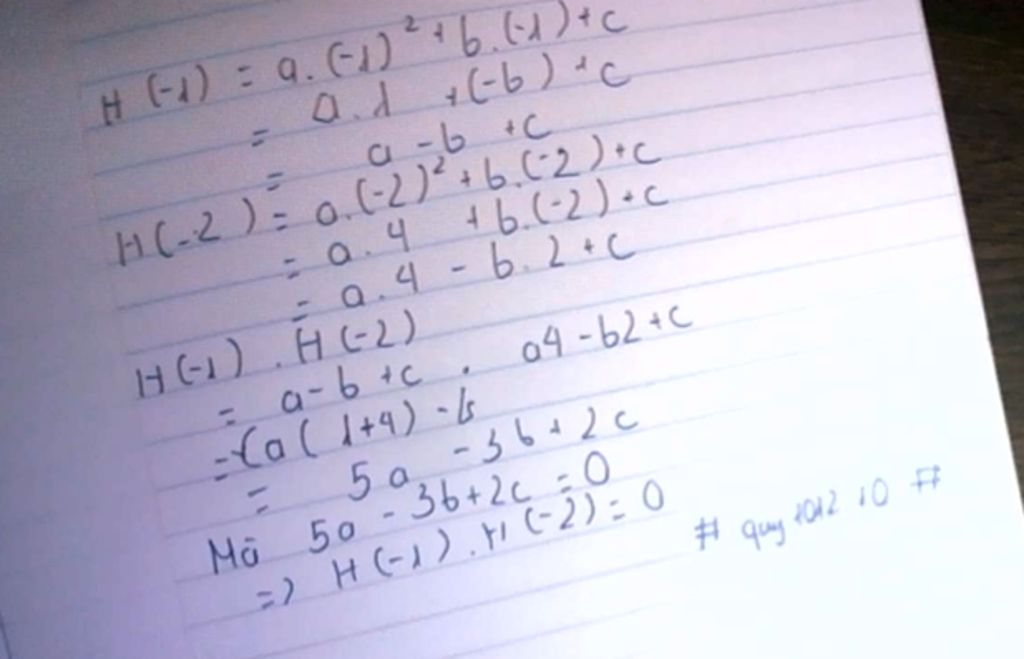 H (-1) = a.(-1)² + b.(-1)+c
= a.1 +(-b) +c
= a - b +c
H(-2) = a.(-2)² + b.(-2)+c
= a.4 +b.(-2)+c
= a.4 - b.2 +c
H(-1) . H(-2)
= a-b+c . a4-b2+c
= a(1+4) -
= 5a - 3b + 2c
Mà 5a - 3b+2c = 0
=> H(-1).H(-2)=0
# quy 1012 10 #